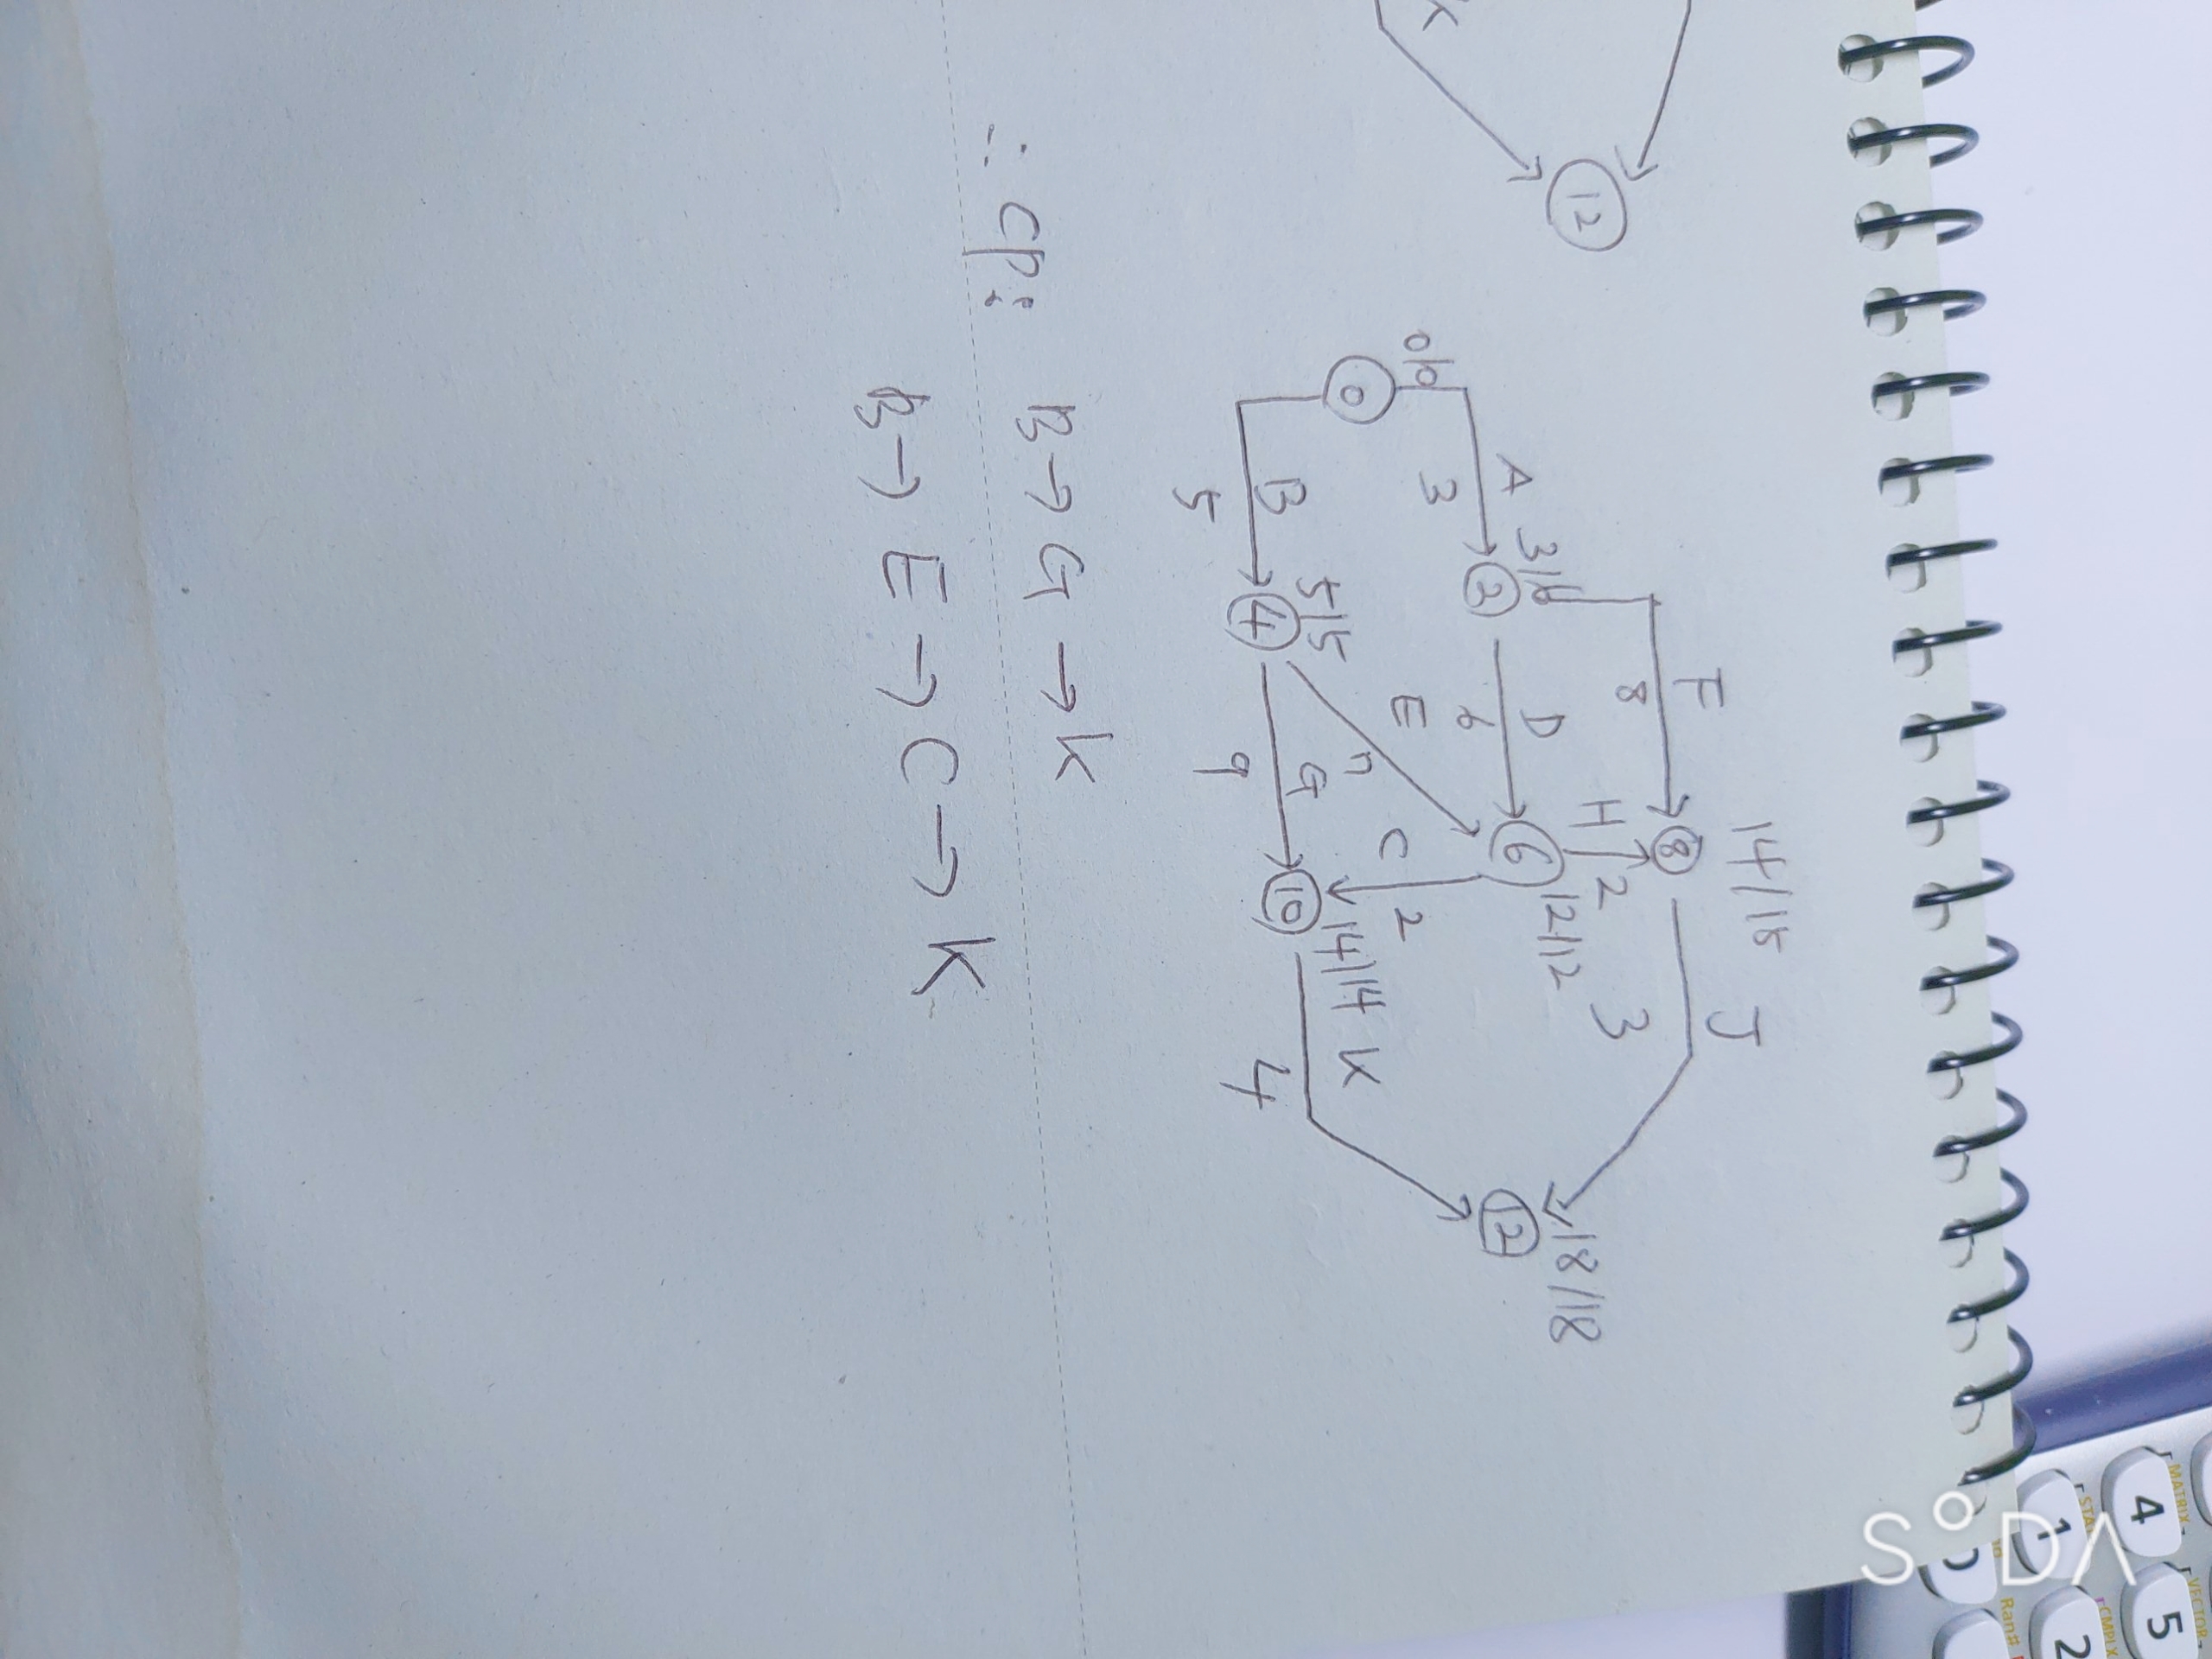 K
12
F
8
14/15
J
A
3
3/6
3
D
6
H
2
8
3
0/0
0
E
n
6
12/12
18/18
12
C
2
B
5
5/5
4
G
9
10
14/14
K
4
∴ CP: B → G → K
B → E → C → K
SODA
MATRIX
VECTOR
4
5
STAT
CMPLX
1
2
Ran#